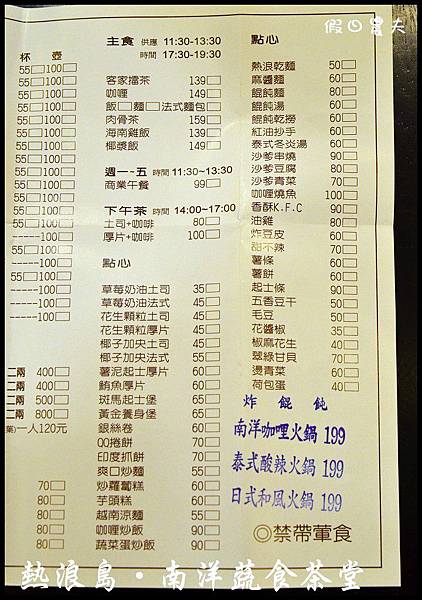 假日農夫
杯 壺
55 100
55 100
55 100
55 100
55 100
55 100
55 100
55 100
55 100
90
90
90
90
-----100
-----100
55 100
-----100
-----100
-----100
二兩 400
二兩 400
二兩 500
二兩 800
葉)一人120元
70
80
80
80
80
主食 供應 11:30-13:30
時間 17:30-19:30
客家擂茶 139
咖哩 149
飯□麵□法式麵包□
肉骨茶 159
海南雞飯 139
椰漿飯 149
週一-五 時間 11:30~13:30
商業午餐 99
下午茶 時間 14:00~17:00
土司+咖啡 80
厚片+咖啡 100
點心
草莓奶油土司 35
草莓奶油法式 45
花生顆粒土司 45
花生顆粒厚片 45
椰子加央土司 45
椰子加央法式 55
薯泥起士厚片 60
鮪魚厚片 60
斑馬起士堡 60
黃金養身堡 65
銀絲卷 60
QQ捲餅 70
印度抓餅 70
爽口炒麵 55
炒蘿蔔糕 60
芋頭糕 60
越南涼麵 55
咖哩炒飯 90
蔬菜蛋炒飯 90
點心
熱浪乾麵 50
麻醬麵 60
餛飩麵 80
餛飩湯 60
餛飩乾撈 80
紅油抄手 60
泰式冬炎湯 50
沙爹串燒 90
沙爹豆腐 80
沙爹青菜 70
咖哩燒魚 100
香酥K.F.C 90
油雞 80
炸豆皮 60
甜不辣 70
薯條 60
薯餅 60
起士條 90
五香豆干 50
毛豆 50
花醬椒 35
椒麻花生 40
翠綠甘貝 70
燙青菜 60
荷包蛋 40
炸 餛 飩
南洋咖哩火鍋 199
泰式酸辣火鍋 199
日式和風火鍋 199
◎禁帶葷食
熱浪島・南洋蔬食茶堂